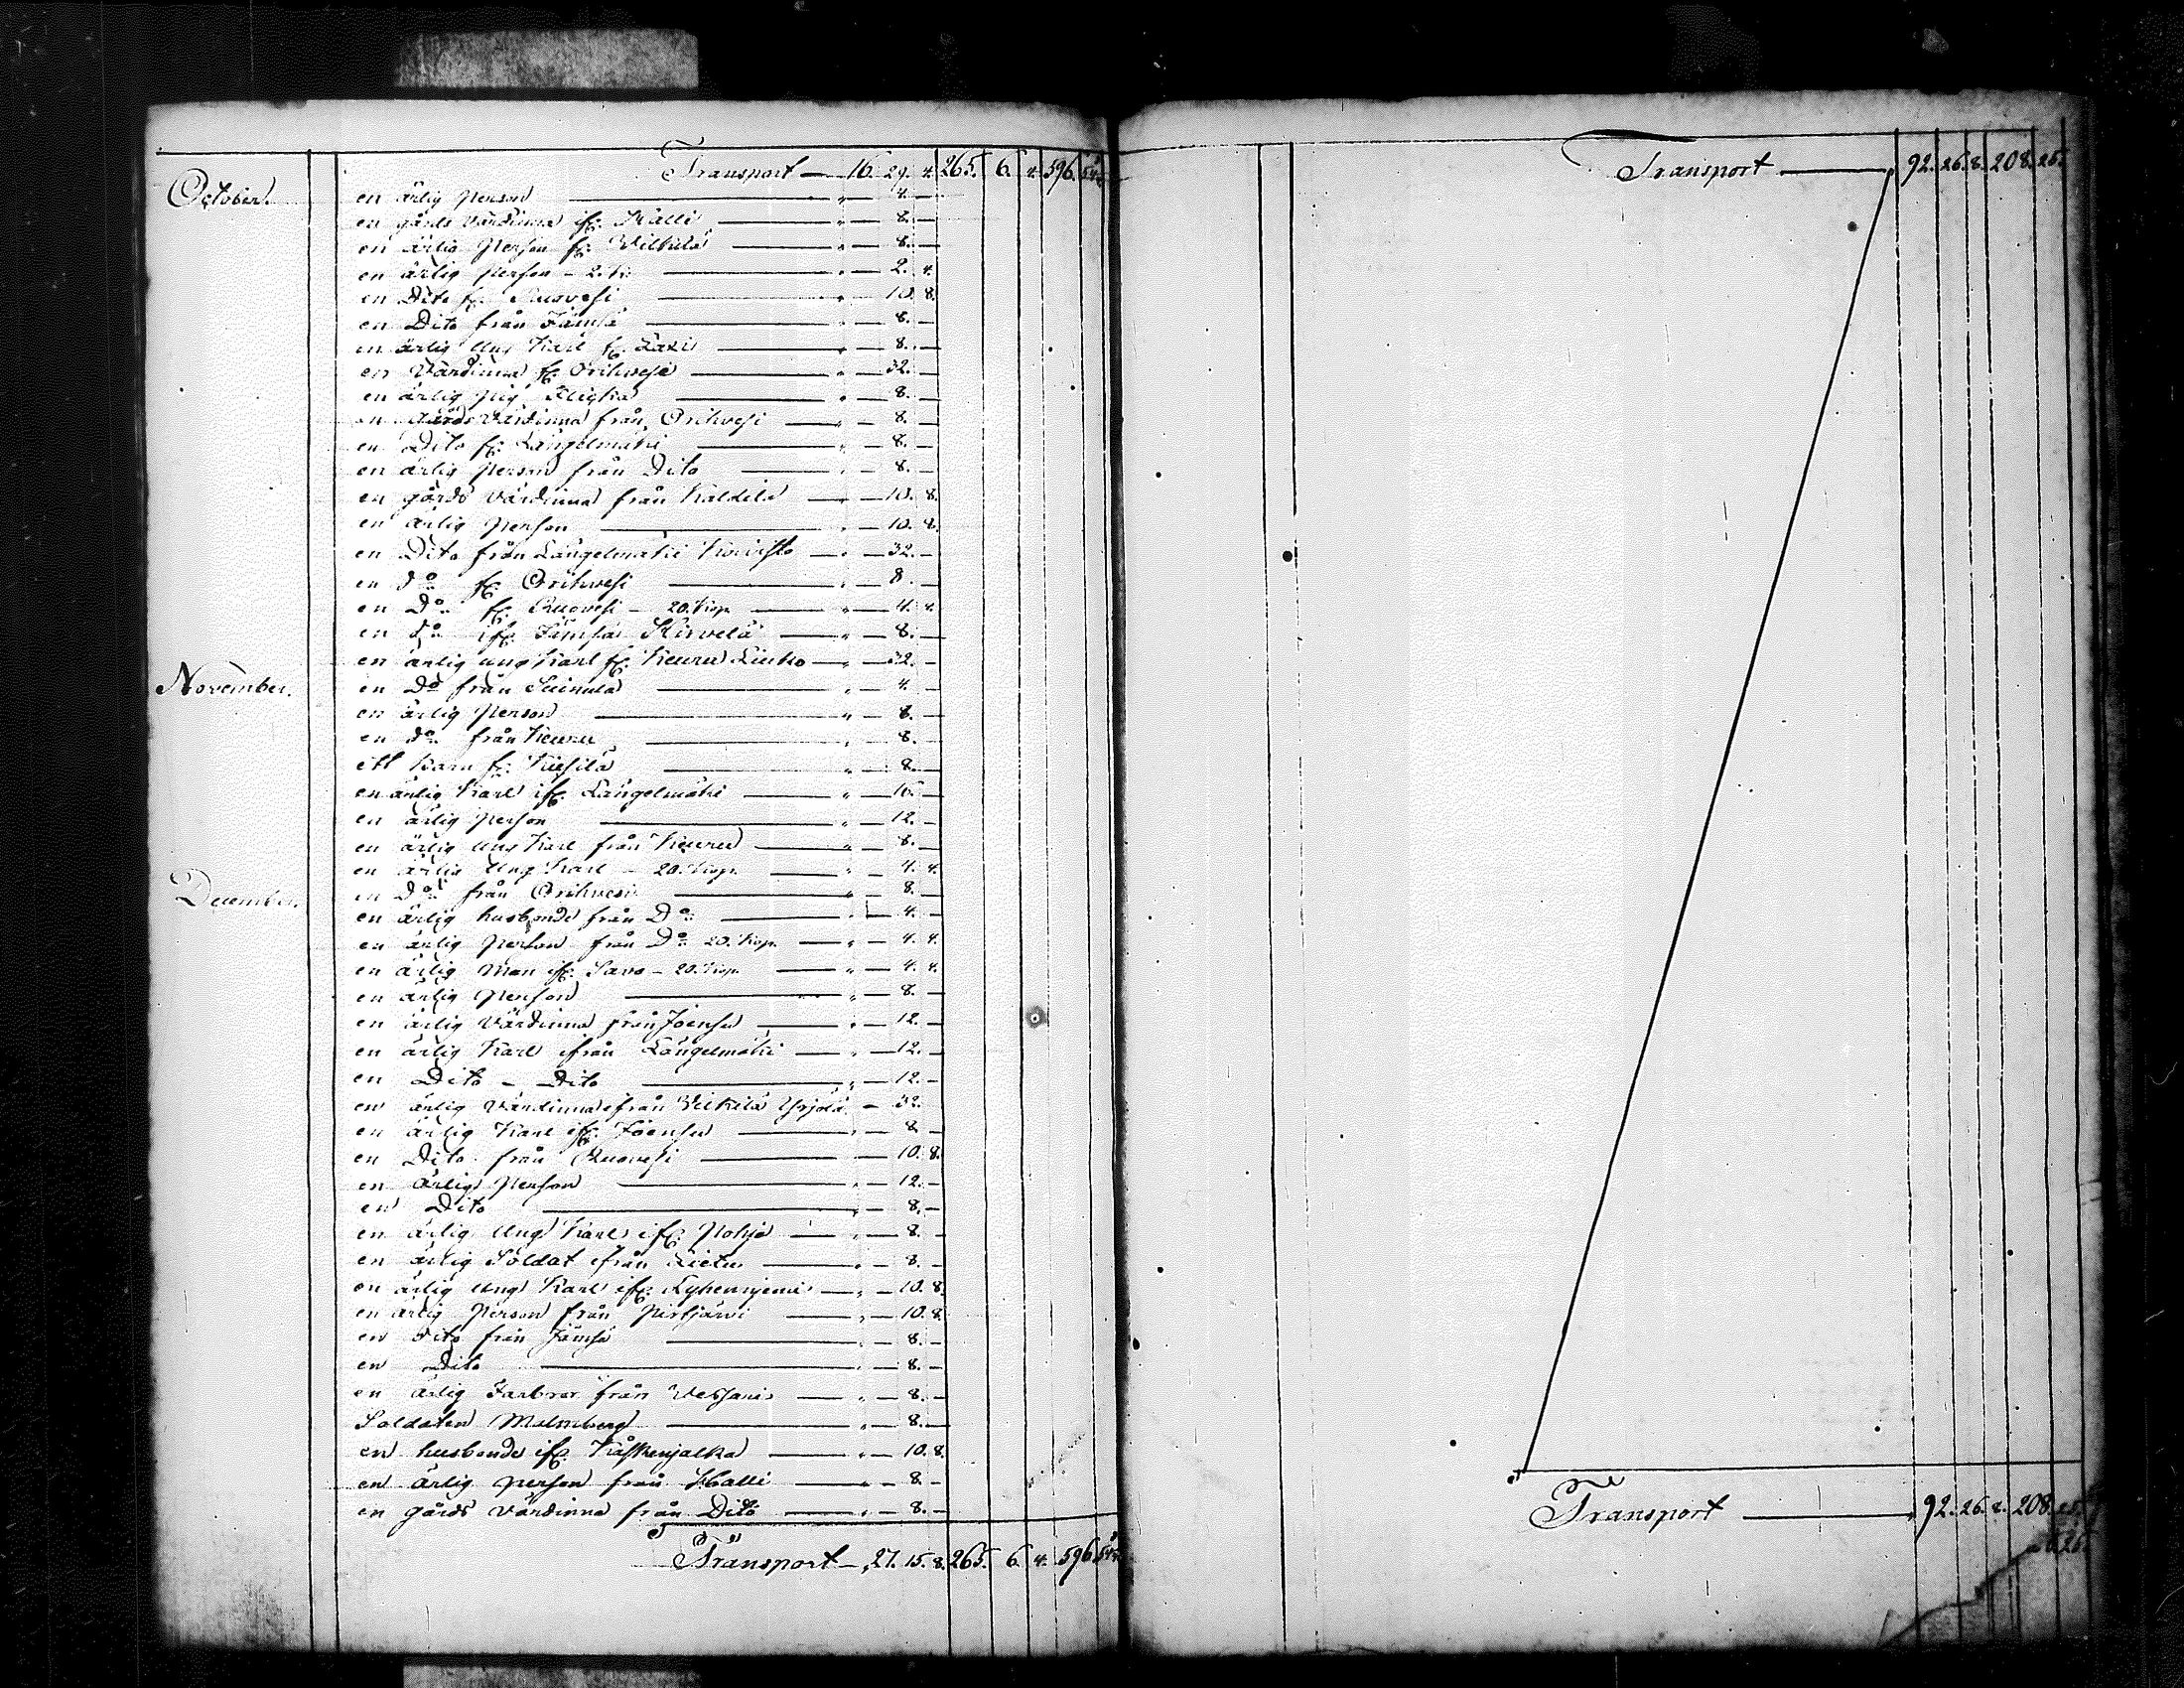 Transport — 16. 29. 4. 265. 6. 4. 596. 54
October. en ärlig person — " — 4. —
en gårds värdinna ifr. Halli — " — 8. —
en ärlig person fr. Wilkilä — " — 8. —
en ärlig person - 2. — " — 2. 4.
en Dito fr. Ruovesi — " — 10. 8.
en Dito från Jämsä — " — 8. —
en ärlig ung Karl fr. — " — 8. —
en Värdinna fr. Orihvesi — " — 32. —
en ärlig — " — 8. —
en Gårds Värdinna från Orihvesi — " — 8. —
en Dito fr. Längelmäki — " — 8. —
en ärlig person från Dito — " — 8. —
en gårds värdinna från Kaldila — " — 10. 8.
en ärlig person — " — 10. 8.
en Dito från Längelmäki Koivisto — " — 32. —
en do fr. Orihvesi — " — 8. —
en Do fr. Ruovesi - 20. Kop. — " — 4. 4.
en do ifr. Jämsä Hirvelä — " — 8. —
en ärlig ung Karl fr. Keuru — " — 32. —
November. en Do från — " — 4. —
en ärlig person — " — 8. —
en do från Keuru — " — 8. —
ett barn fr. — " — 8. —
en ärlig Karl ifr. Längelmäki — " — 16. —
en ärlig person — " — 12. —
en ärlig ung Karl från Keuru — " — 8. —
en ärlig ung Karl - 20. Kop. — " — 4. 4.
December. en Do från Orihvesi — " — 8. —
en ärlig husbonde från Do — " — 4. —
en ärlig person från Do 20. Kop. — " — 4. 4.
en ärlig Man ifr. Savo - 20. Kop. — " — 4. 4.
en ärlig person — " — 8. —
en ärlig Värdinna från Joensu — " — 12. —
en ärlig Karl ifrån Längelmäki — " — 12. —
en Dito - Dito — " — 12. —
en ärlig Värdinna ifrån Wilkilä Yrjölä — 32.
en ärlig Karl ifr. Joensu — " — 8. —
en Dito från Ruovesi — 10. 8.
en ärlig person — " — 12. —
en Dito — " — 8. —
en ärlig Ung Karl ifr. Pohja — " — 8. —
en ärlig Soldat ifrån — " — 8. —
en ärlig ung Karl ifr. — " — 10. 8.
en ärlig person från — " — 10. 8.
en Dito från Jämsä — " — 8. —
en Dito — " — 8. —
en ärlig Farbror från — " — 8. —
Soldaten Malmberg — " — 8. —
en husbonde ifr. — " — 10. 8.
en ärlig person från Halli — " — 8. —
en gårds Värdinna från Dito — " — 8. —
Transport — " 27. 15. 8. 265. 6. 4. 596 54
Transport — " 92. 26. 8. 208. 25.
Transport — " 92. 26. 8. 208.